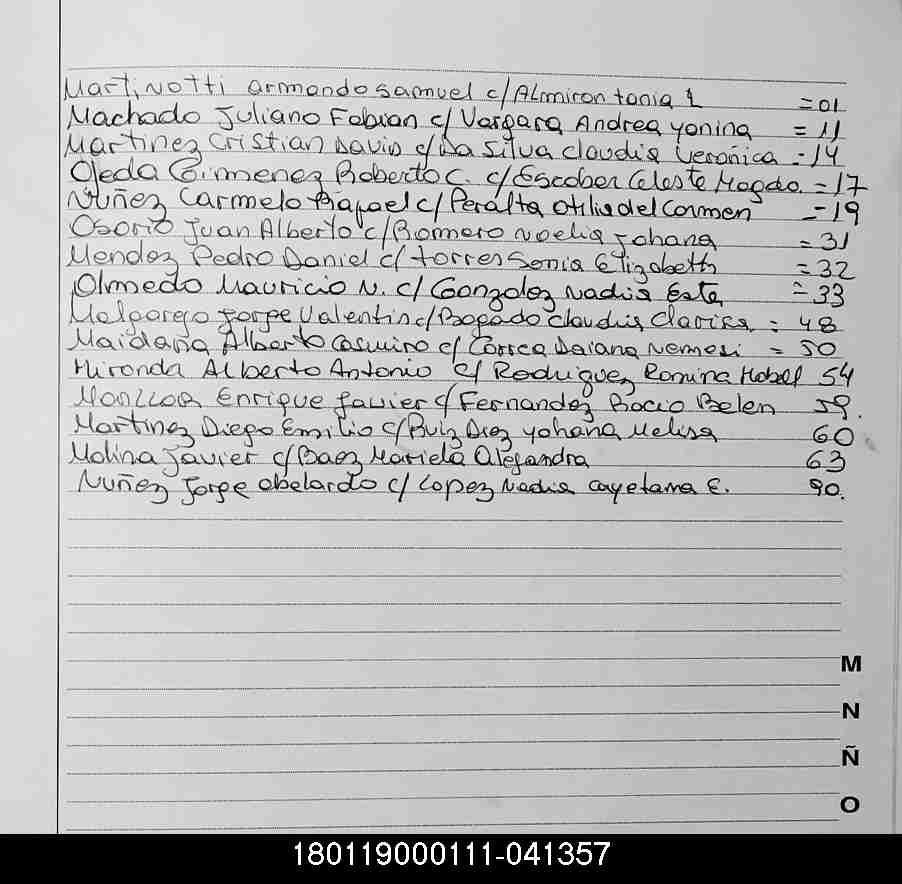 Martinotti armando samuel c/ Almiron tania L = 01
Machado Juliano Fabian c/ Vargara Andrea yonina = 11
Martinez Cristian David c/ Da Silva Claudia Veronica = 14
Ojeda Gimenez Roberto C. c/ Escobar Celeste Magda. = 17
Nuñez Carmelo Rafael c/ Peralta Otilia del Carmen = 19
Osorio Juan Alberto c/ Romero Noelia Johana = 31
Mendez Pedro Daniel c/ torres Sonia Elizabeth = 32
Olmedo Mauricio N. c/ Gonzalez Nadia Este = 33
Melgarejo Jorge Valentin c/ Bogado Claudia Clarisa = 48
Maidana Alberto Casmiro c/ Correa Daiana Nemesi = 50
Miranda Alberto Antonio c/ Rodriguez Romina Mabel 54
Enrique Javier c/ Fernandez Rocio Belen 59.
Martinez Diego Emilio c/ Ruiz Diez yohana Melisa 60
Molina Javier c/ Baez Mariela Alejandra 63
Nuñez Jorge abelardo c/ Lopez Nadia cayetana E. 90.
M
N
Ñ
O
180119000111-041357